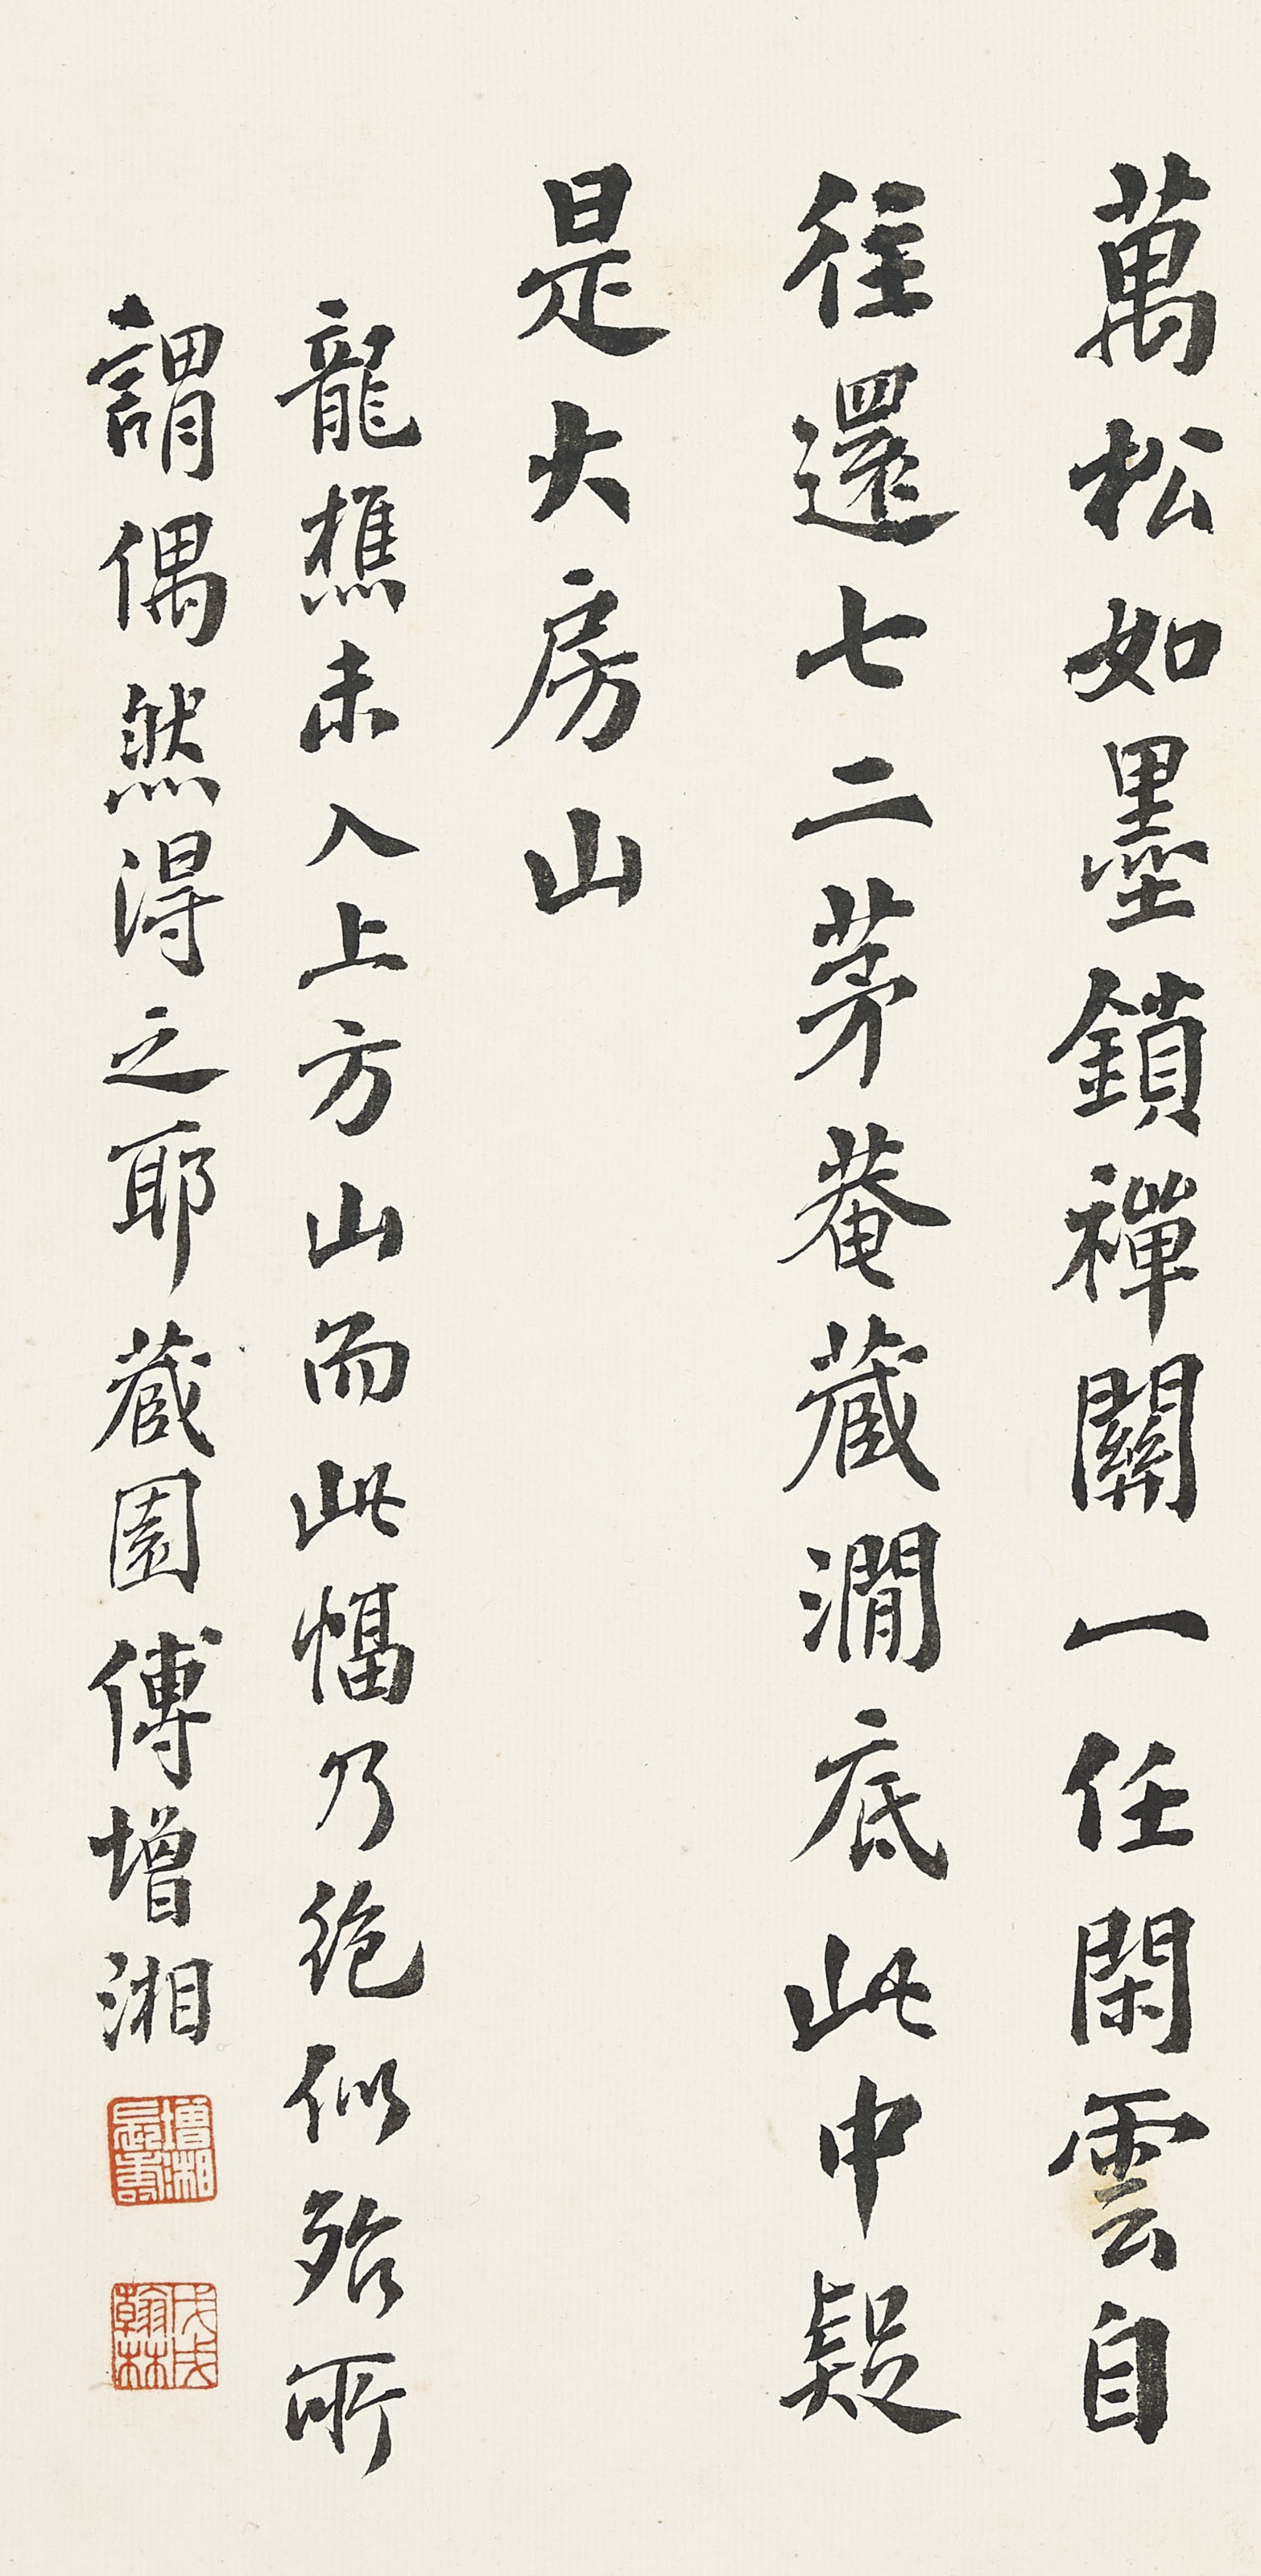 萬松如墨鎖禪關一任閑雲自
往還七二茅菴藏澗底此中疑
是大房山
龍樵未入上方山而此幅乃絶似殆所
謂偶然得之耶藏園傅增湘
增湘長壽
戊戌翰林